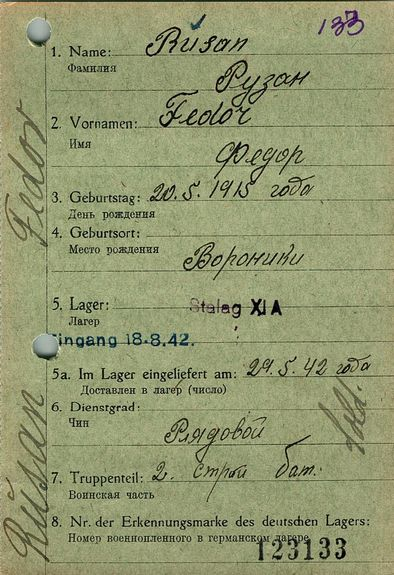 133
1. Name: Rúsan
Фамилия
Рузан
2. Vornamen: Fedor
Имя
Федор
3. Geburtstag: 20.5.1915 года
День рождения
4. Geburtsort:
Место рождения
Вороники
5. Lager: Stalag XI A
Лагер
Eingang 18-8.42.
5a. Im Lager eingeliefert am: 29.5.42 года
Доставлен в лагер (число)
6. Dienstgrad:
Чин
Рядовой
Sold.
7. Truppenteil: 2. строй бат.
Воинская часть
8. Nr. der Erkennungsmarke des deutschen Lagers:
Номер военнопленного в германском лагере
123133
Rúsan Fedor